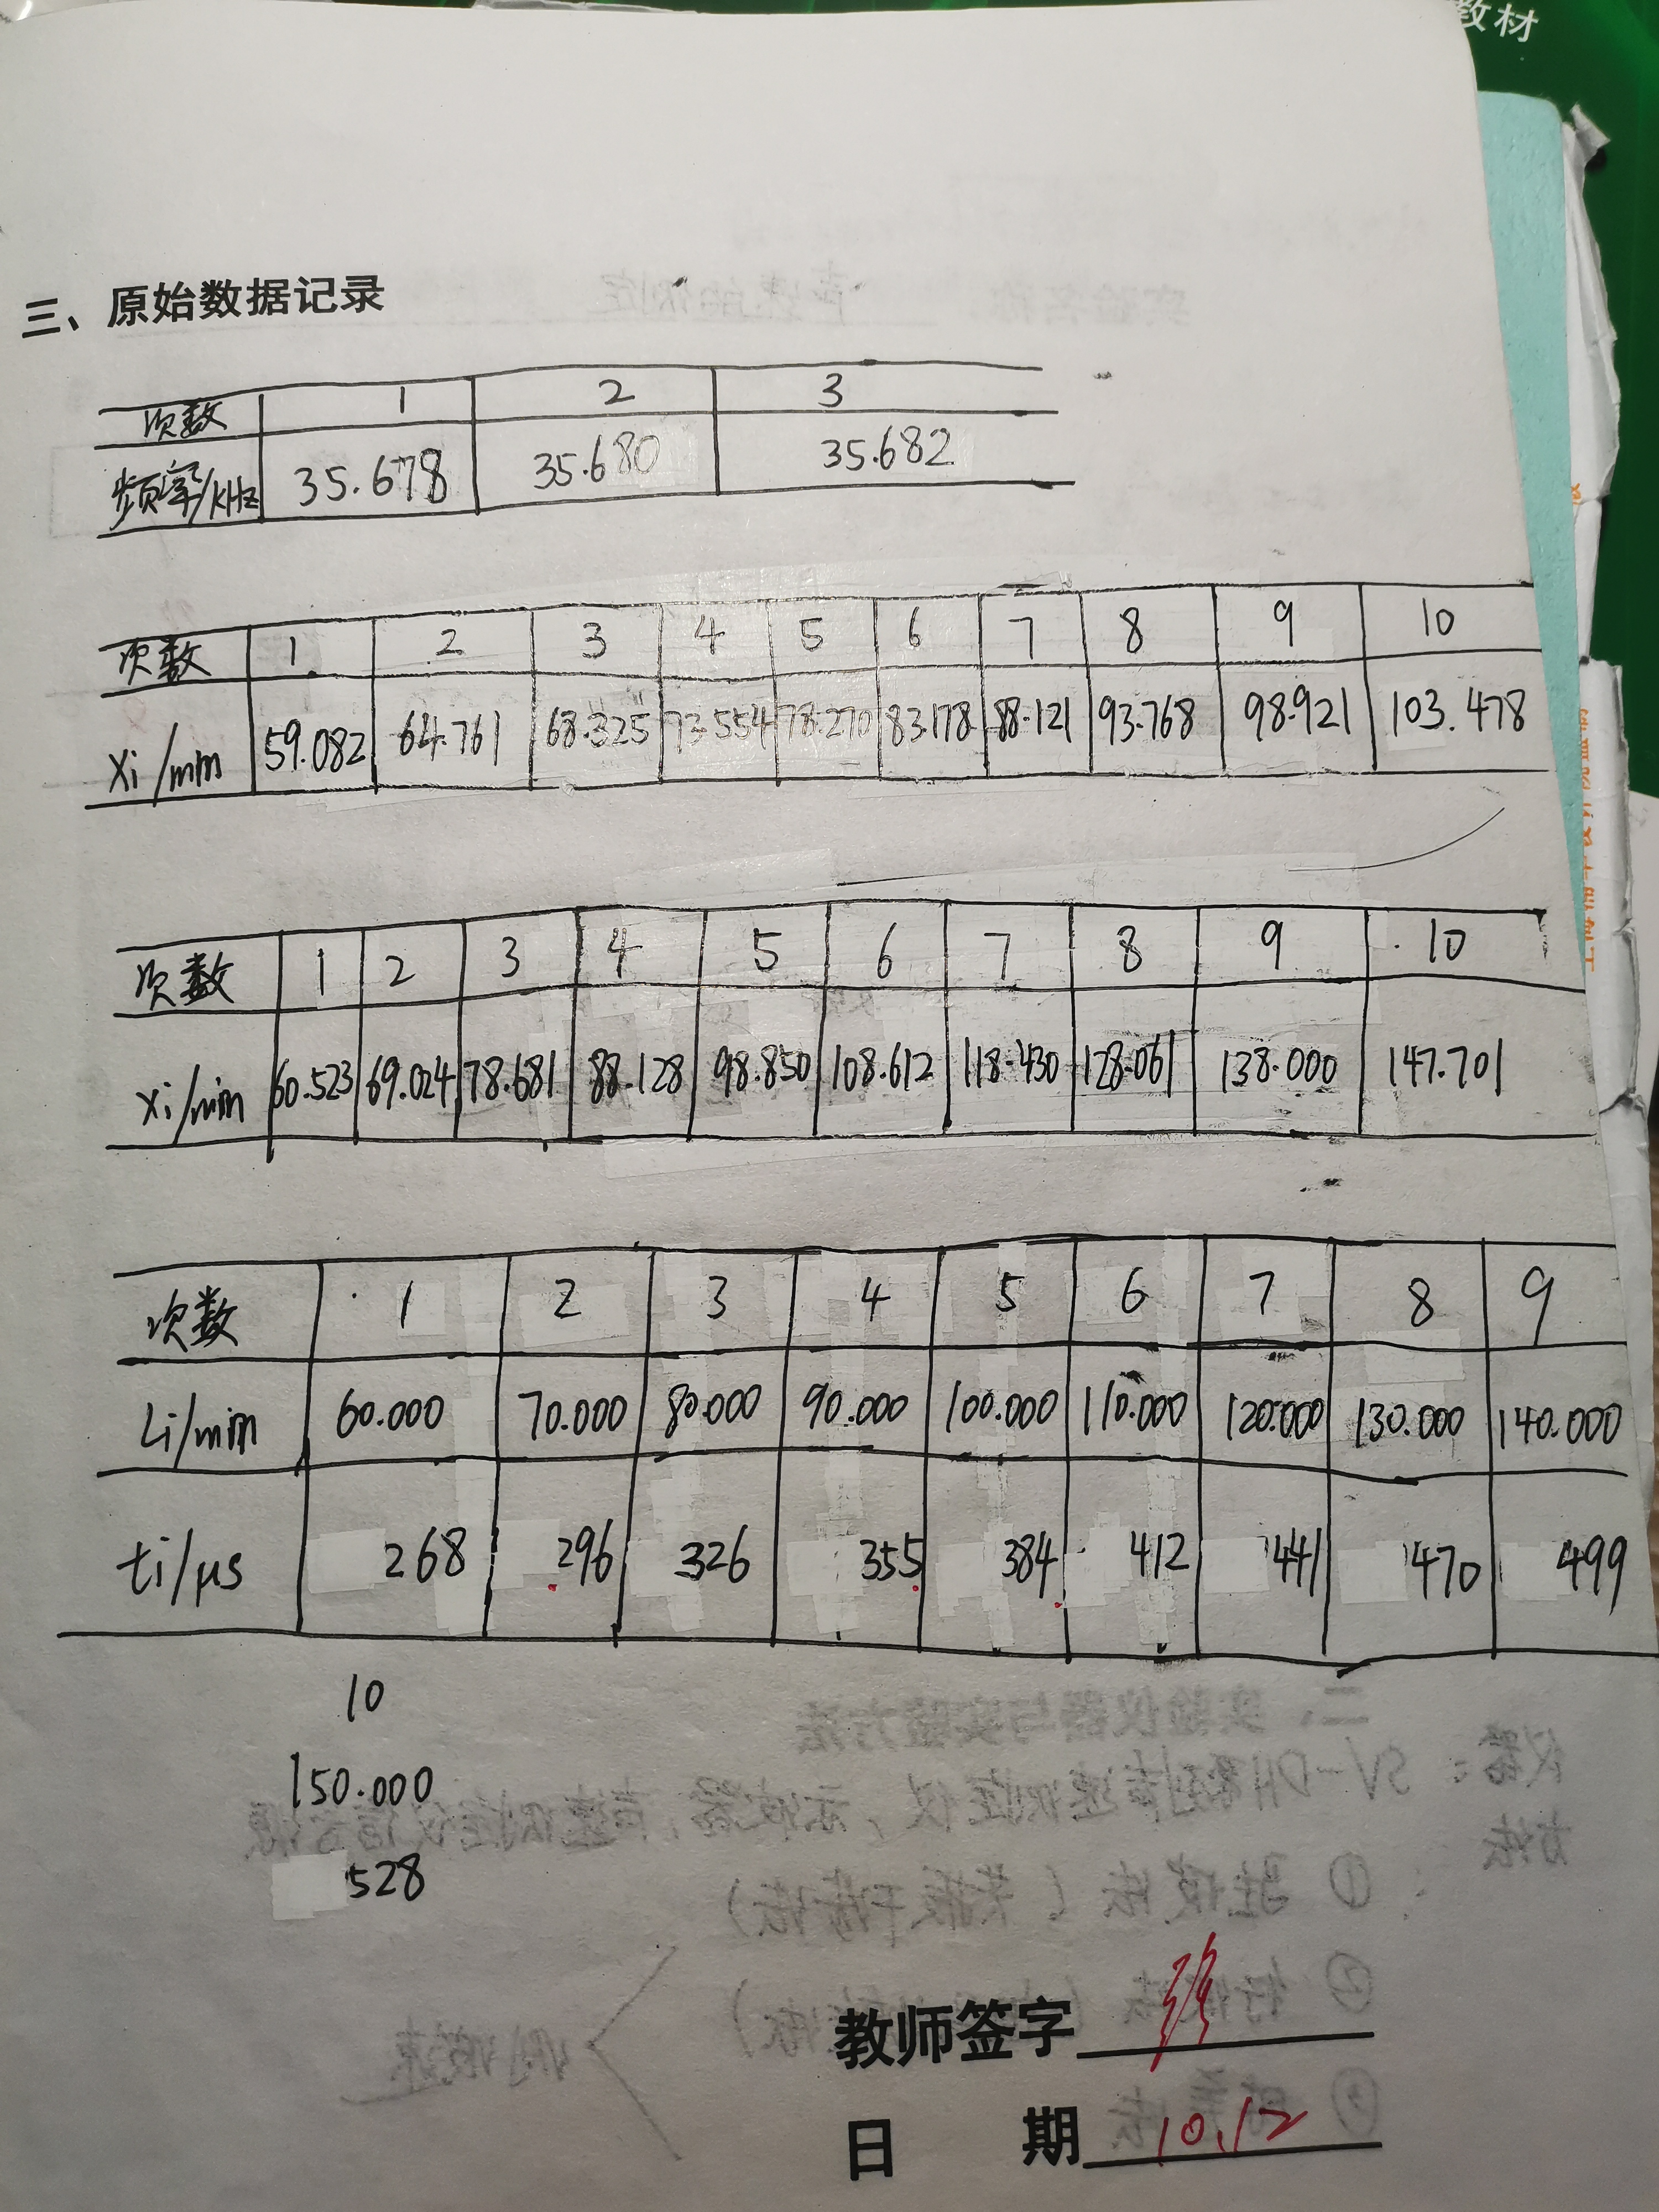 教材
三、原始数据记录
次数 1 2 3
频率/kHz 35.678 35.680 35.682
次数 1 2 3 4 5 6 7 8 9 10
xi/mm 59.082 64.761 68.325 73.554 78.270 83.178 88.121 93.768 98.921 103.478
次数 1 2 3 4 5 6 7 8 9 10
xi/mm 60.523 69.024 78.681 88.128 98.850 108.612 118.430 128.061 138.000 147.701
次数 1 2 3 4 5 6 7 8 9
Li/mm 60.000 70.000 80.000 90.000 100.000 110.000 120.000 130.000 140.000
ti/μs 268 296 326 355 384 412 441 470 499
10
150.000
528
教师签字
日 期 10.12